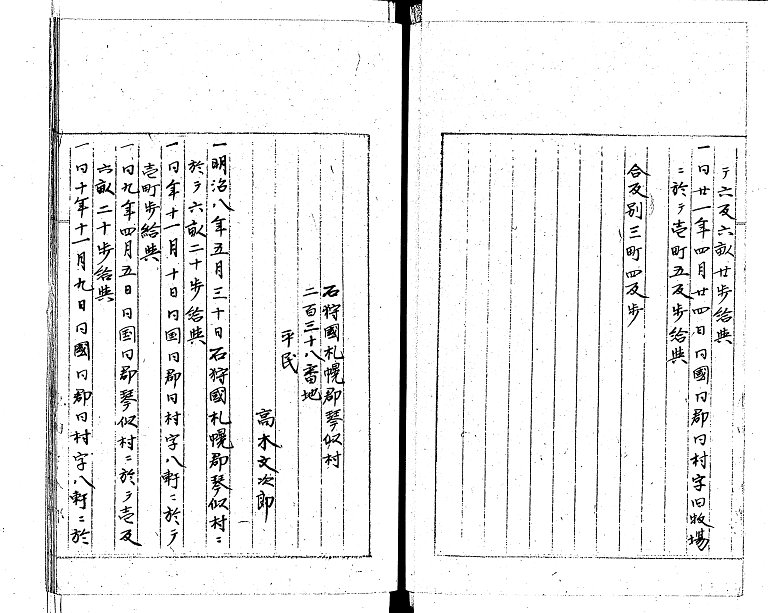 テ六反六畝廿歩給与
一同廿一年四月廿四日同國同郡同村字旧牧場
ニ於テ壱町五反歩給与
合反別三町四反歩
石狩國札幌郡琴似村
二百三十八番地
平民
高木文次郎
一明治八年五月三十日石狩國札幌郡琴似村ニ
於テ六畝二十歩給与
一同年十一月十日同国同郡同村字八軒ニ於テ
壱町歩給与
一同九年四月五日同国同郡琴似村ニ於テ壱反
六畝二十歩給与
一同十年十一月九日同國同郡同村字八軒ニ於